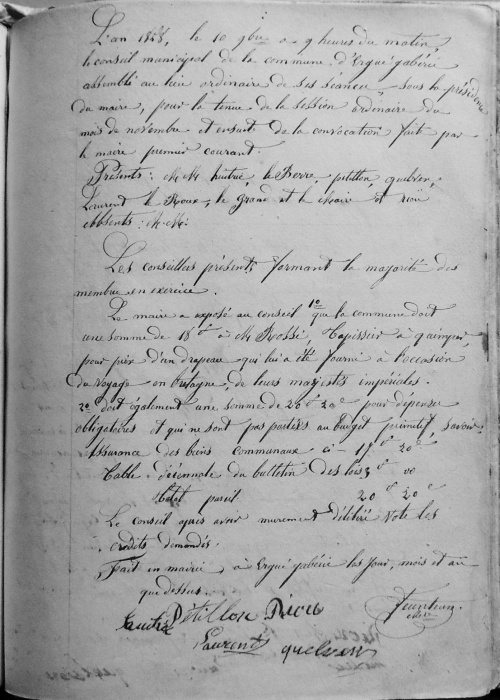 L'an 1858, le 10 9bre a 9 heures du matin,
le conseil municipal de la commune d'Ergué gaberic
assemblé au lieu ordinaire de ses séances, sous la présidence
du maire, pour la tenue de la session ordinaire du
mois de novembre et ensuit de la convocation fait par
le maire premier courant.
Présents: MM huitric, le Berre, petillon quelven,
Laurent le Roux, le grand et le maire et
abbsents: MM:
Les conseillers présents formant la majorité des
membres en exercice.
Le maire a exposé au conseil 1º que la commune doit
une somme de 18 f à M Rossi, tapissier à quimper,
pour prix d'un drapeau qui lui a été fourni à l'occasion
du voyage en bretagne, de leurs majestés impériales.
2º doit également une somme de 20 f 20 c pour dépenses
obligatoires et qui ne sont pas portées au budget primitif, savoir:
Assurance des biens communaux ci - 17 f 20 c
Table décennale du bulletin des lois 3 f 00
total pareil 20 f 20 c
Le conseil apres avoir murement délibéré vote les
credits demandés.
Fait en mairie, à Ergué gabéric les jour, mois et an
que dessus.
Petillon
Laurent quelven